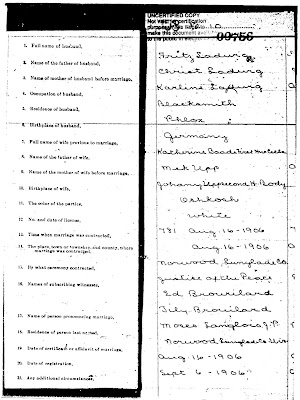 UNCERTIFIED COPY
Not valid
make this document
to the public
00756
1. Full name of husband,
Fritz Ladwig
2. Name of the father of husband,
Christ Ladwig
3. Name of mother of husband before marriage,
Karline
4. Occupation of husband,
Blacksmith
5. Residence of husband,
Phlox
6. Birthplace of husband,
Germany
7. Full name of wife previous to marriage,
Katherine
8. Name of the father of wife,
Upp
9. Name of the mother of wife before marriage,
10. Birthplace of wife,
Oshkosh
11. The color of the parties,
White
12. No. and date of license,
731 Aug. 16 - 1906
13. Time when marriage was contracted,
Aug. 16 - 1906
14. The place, town or township, and county, where marriage was contracted,
Norwood Langlade Co.
15. By what ceremony contracted,
Justice of the Peace
16. Names of subscribing witnesses,
Ed Brouilard
Brouilard
17. Name of person pronouncing marriage,
Moses Langlois J.P.
18. Residence of person last named,
Norwood Langlade
19. Date of certificate or affidavit of marriage,
Aug. 16 - 1906
20. Date of registration,
Sept 6 - 1906
21. Any additional circumstances,